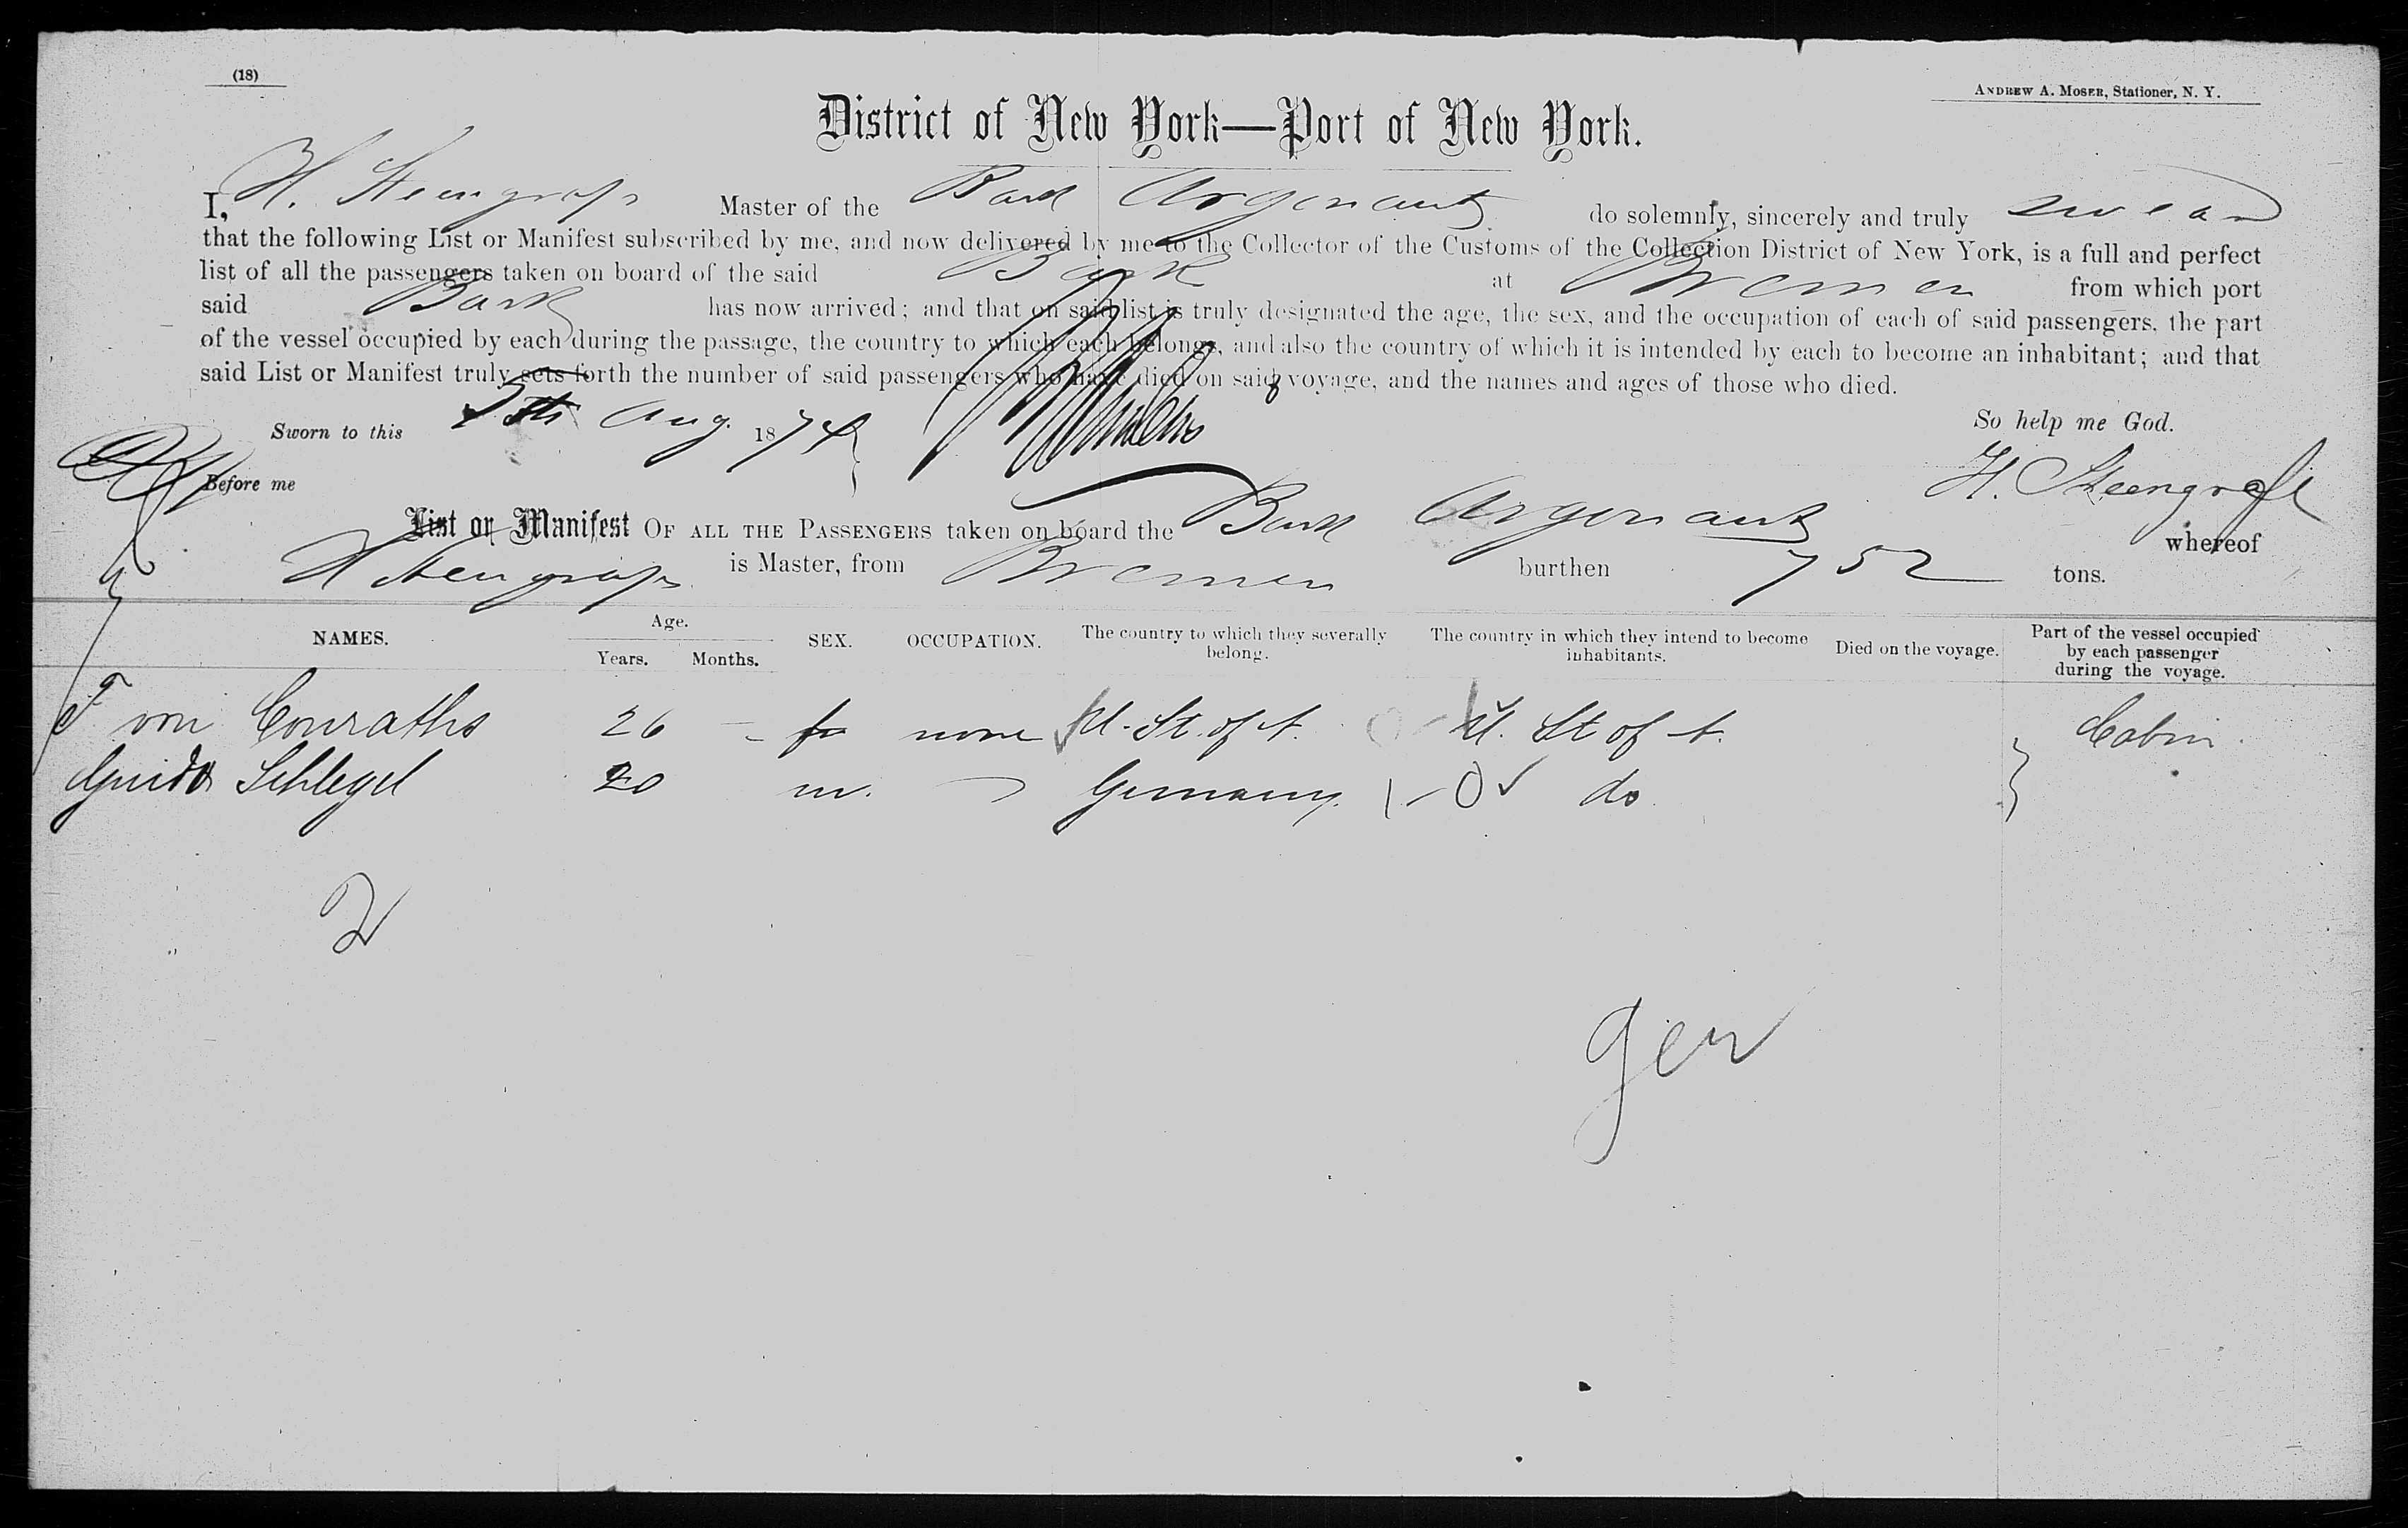 (18)
ANDREW A. MOSER, Stationer, N. Y.
District of New York—Port of New York.
I, H. Steengrafe Master of the Bark Argonaut do solemnly, sincerely and truly swear
that the following List or Manifest subscribed by me, and now delivered by me to the Collector of the Customs of the Collection District of New York, is a full and perfect
list of all the passengers taken on board of the said Bark at Bremen from which port
said Bark has now arrived; and that on said list is truly designated the age, the sex, and the occupation of each of said passengers, the part
of the vessel occupied by each during the passage, the country to which each belongs, and also the country of which it is intended by each to become an inhabitant; and that
said List or Manifest truly sets forth the number of said passengers who have died on said voyage, and the names and ages of those who died.
So help me God.
Sworn to this 5th Aug. 1874
H. Steengrafe
Before me
List or Manifest OF ALL THE PASSENGERS taken on board the Bark Argonaut whereof
H Steengrafe is Master, from Bremen burthen 752 tons.
NAMES. Age. Years. Months. SEX. OCCUPATION. The country to which they severally belong. The country in which they intend to become inhabitants. Died on the voyage. Part of the vessel occupied by each passenger during the voyage.
F von Conraths 26 - f none U. St. of A. U. St of A. Cabin.
Guido Schlegel 20 m. Germany. 1 - 0 ✓ do
2
Ger